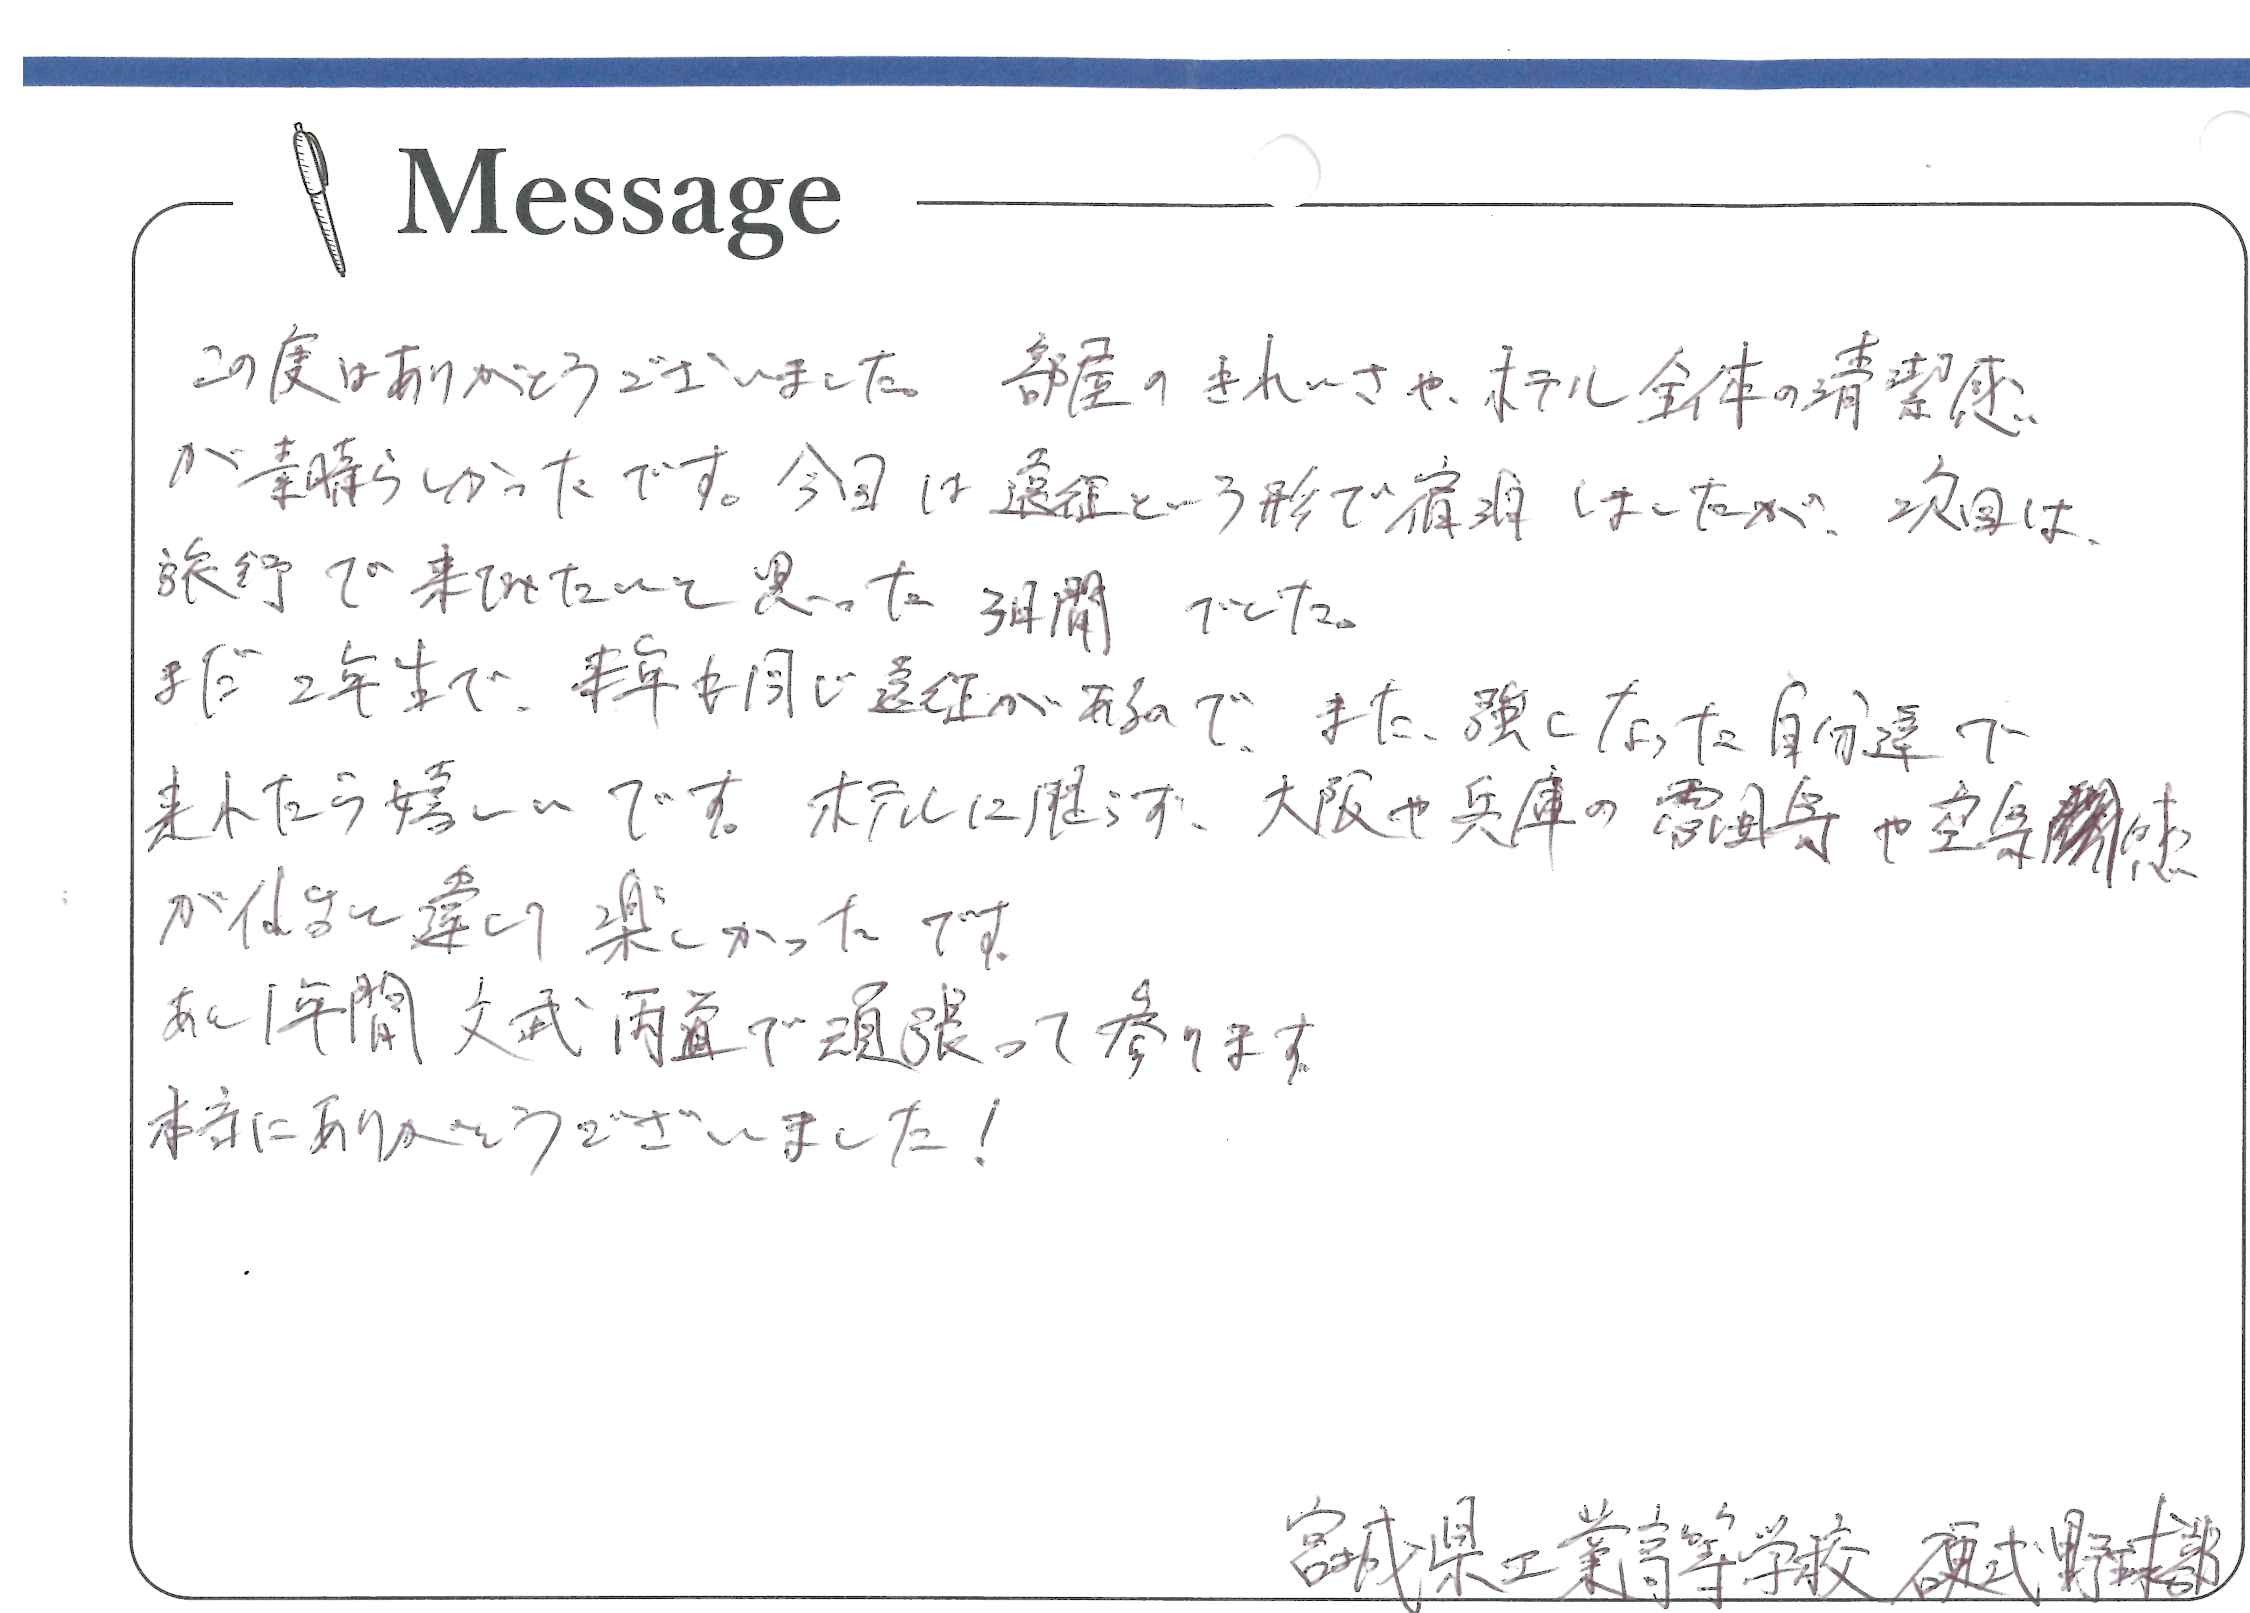 Message
この度はありがとうございました。 部屋のきれいさや、ホテル全体の清潔感
が素晴らしかったです。今回は遠征という形で宿泊しましたが、次回は、
旅行で来てみたいと思った3日間 でした。
まだ2年生で、来年も同じ遠征が有るので、また、強くなった自分達で
来れたら嬉しいです。ホテルに限らず、大阪や兵庫の雰囲気や空気感
が仙台と違くて楽しかったです。
あと1年間文武両道で頑張って参ります。
本当にありがとうございました!
宮城県工業高等学校 硬式野球部